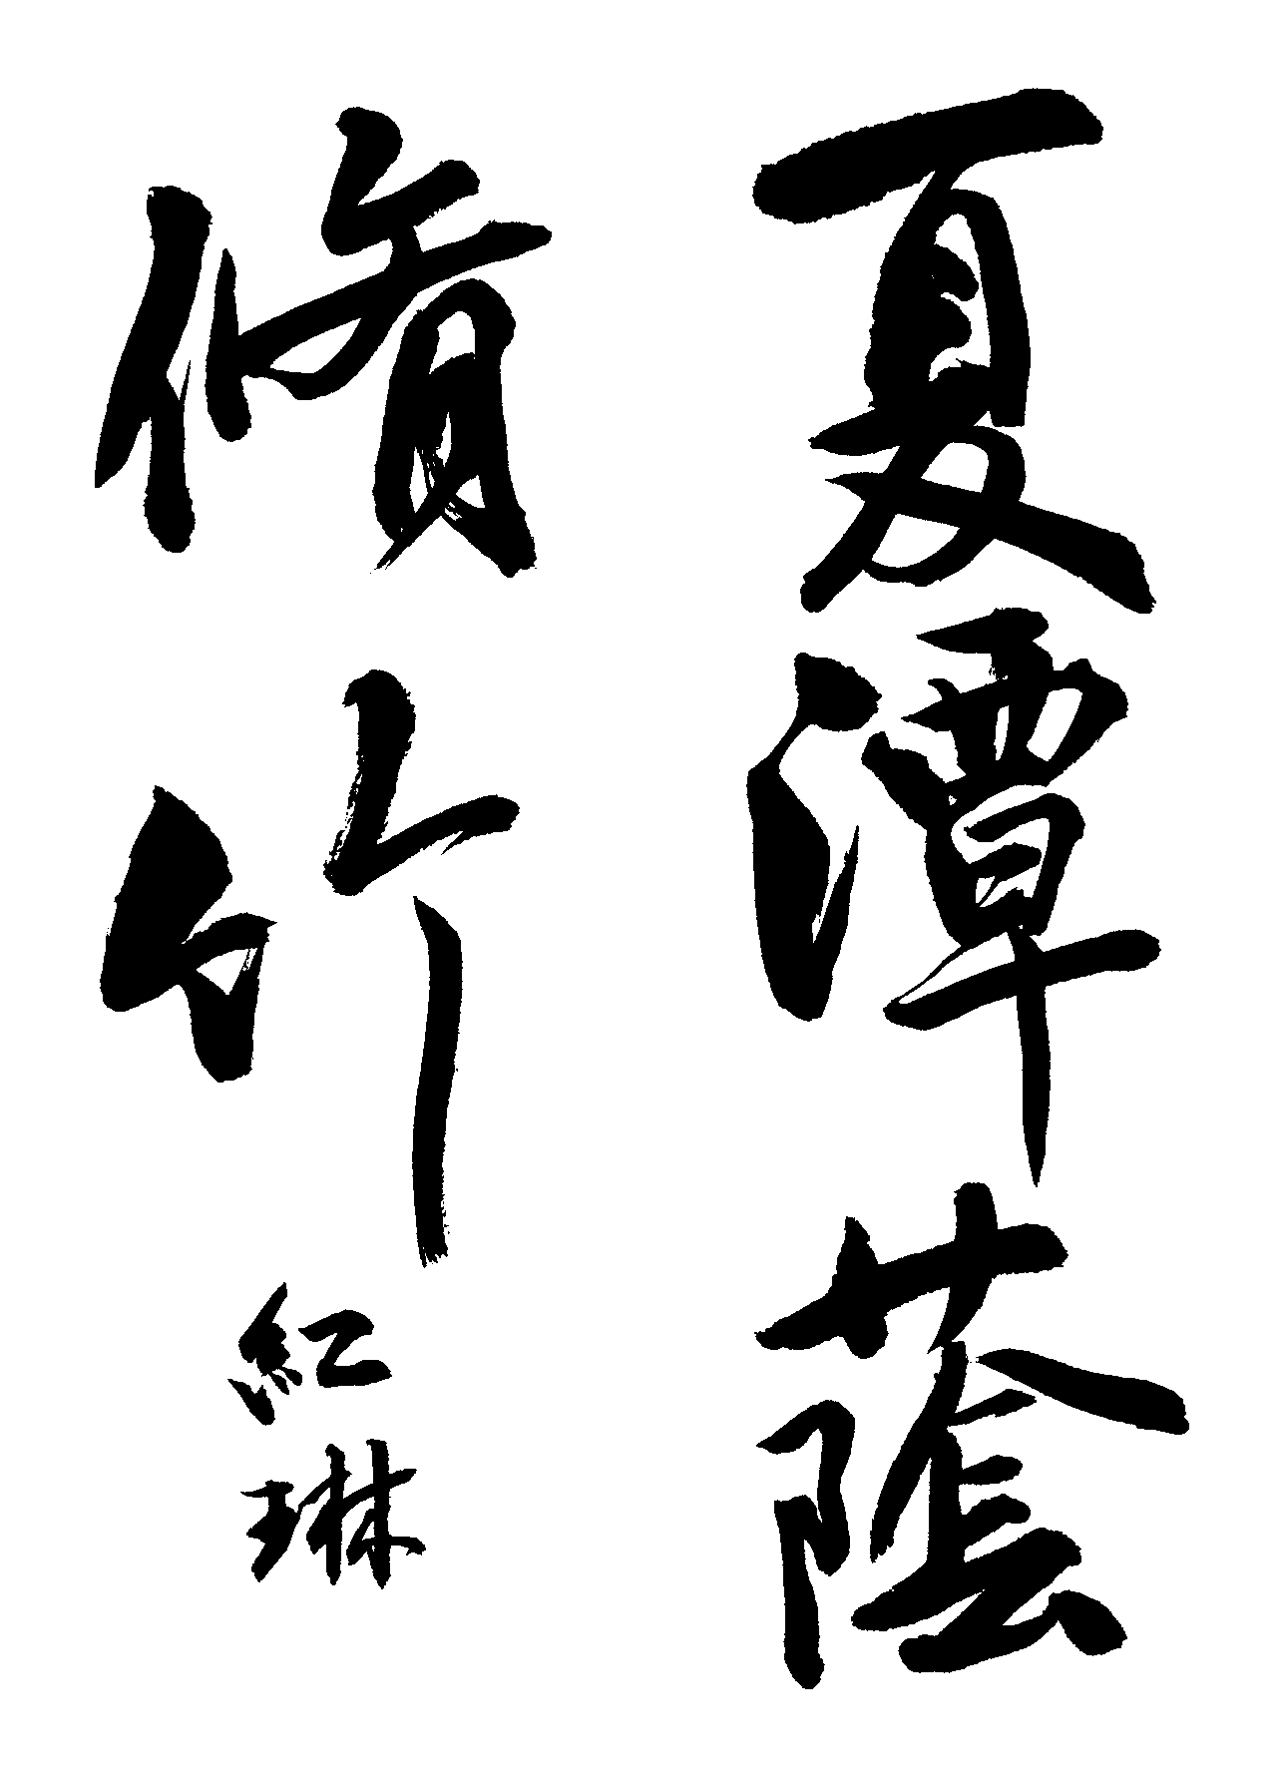 夏潭蔭
脩竹
紅琳